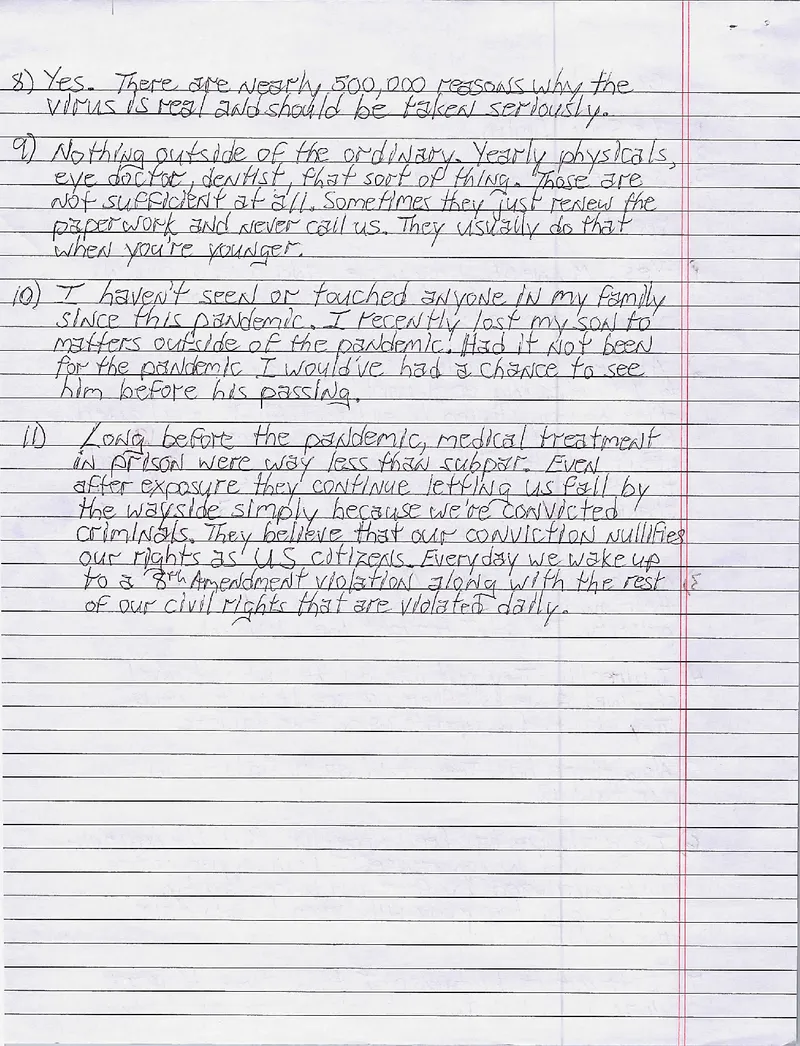 8) Yes. There are nearly 500,000 reasons why the
virus is real and should be taken seriously.
9) Nothing outside of the ordinary. Yearly physicals,
eye doctor, dentist, that sort of thing. Those are
not sufficient at all. Sometimes they just renew the
paperwork and never call us. They usually do that
when you're younger.
10) I haven't seen or touched anyone in my family
since this pandemic. I recently lost my son to
matters outside of the pandemic. Had it not been
for the pandemic I would've had a chance to see
him before his passing.
11) Long before the pandemic, medical treatment
in prison were way less than subpar. Even
after exposure they continue letting us fall by
the wayside simply because we're convicted
criminals. They believe that our conviction nullifies
our rights as US citizens. Everyday we wake up
to a 8th Amendment violation along with the rest
of our civil rights that are violated daily.